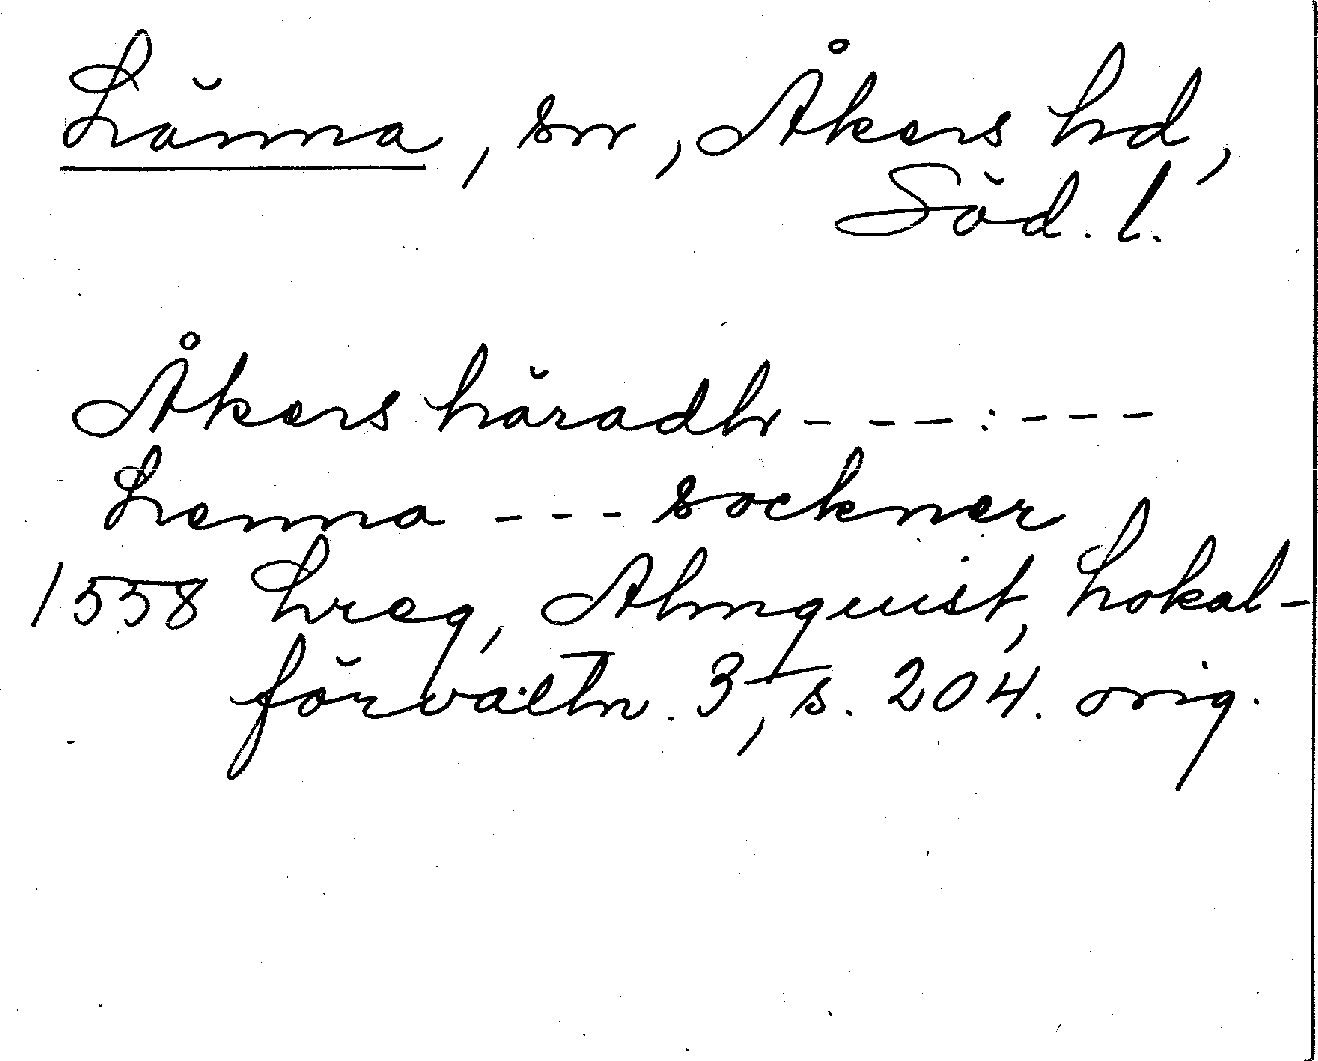 Länna, sn, Åkers hd,
Söd. l.
Åkers häradh - - - : - - -
Lenna - - - sockner
1558 Lreg, Almquist, Lokal-
förvaltn. 3, s. 204. orig.